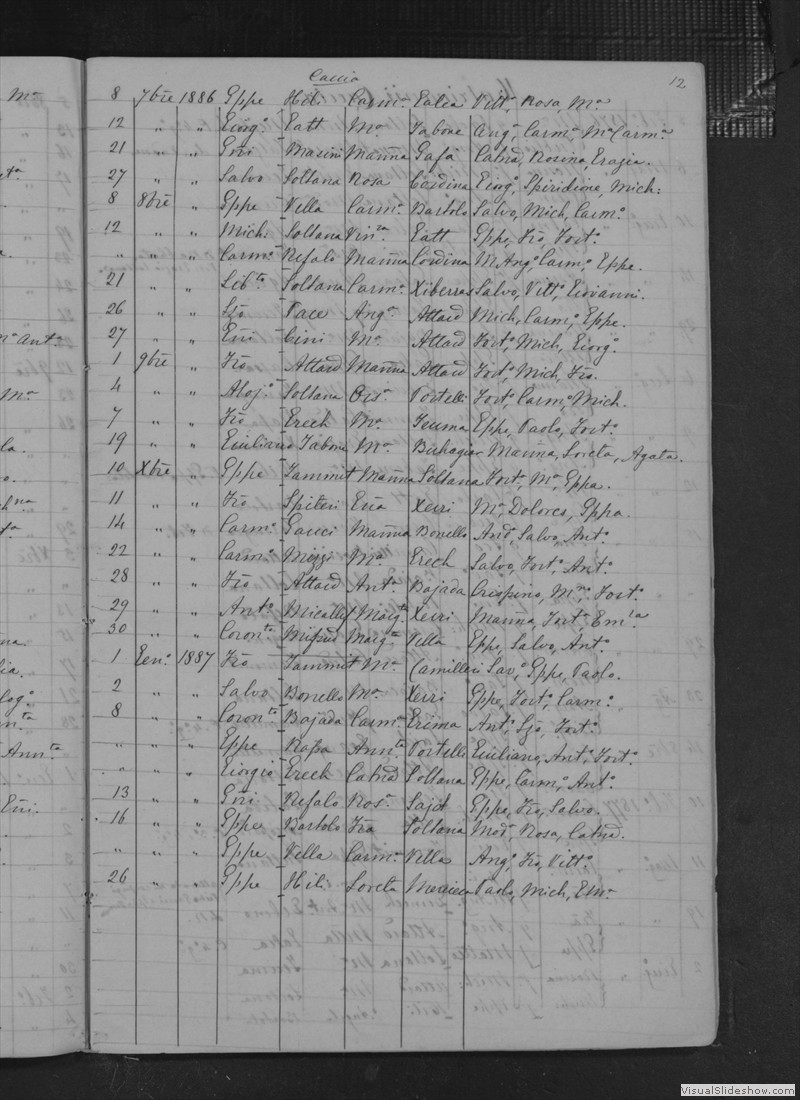 Caccia
12
8 7bre 1886 Gppe Hili Carm.a Galea Vitt.a Rosa, M.a
12 " " Giorg.o Gatt M.a Tabone Ang.a, Carm.a M.a Carm.a
21 " " Gni Marini Mariña Gafà Cattna, Rosina, Grazia.
27 " " Salvo Soltana Rosa Cardina Giorg.o, Spiridione, Mich:
8 8bre " Gppe Vella Carm.a Bartolo Salvo, Mich, Carm.o
12 " " Mich: Soltana Vin.ta Gatt Gppe, Fro, Fort.o
" " " Carm.o Refalo Mariña Cordina M.Ang.o, Carm.o, Gppe.
21 " " Lib.to Soltana Carm.a Xiberras Salvo, Vitt.o, Giovanni.
26 " " Lzo Pace Ang.a Attard Mich, Carm.o, Gppe.
27 " " Eñi Cini M.a Attard Fort.o, Mich, Giorg.o
1 9bre " Fro Attard Mariña Attard Fort.o, Mich, Fro.
4 " " Aloj.o Soltana Ors.a Portelli Fort.o, Carm.o, Mich.
7 " " Fro Grech M.a Teuma Gppe, Paolo, Fort.o
19 " " Giuliano Tabone M.a Buhagiar Mariña, Loreta, Agata.
10 Xbre " Gppe Zammit Mariña Soltana Fort.o, M.a, Gppa.
11 " " Fro Spiteri Eña Xerri M.a Dolores, Gppa.
14 " " Carm.o Gauci Mariña Bonello And.a, Salvo, Ant.o
22 " " Carm.o Mizzi M.a Grech Salvo, Fort.o, Ant.o
28 " " Fro Attard Ant.a Bajada Crispino, M.no, Fort.o
29 " " Ant.o Micallef Marg.ta Xerri Mariña, Fort.a Em.la
30 " " Coron.to Mifsud Marg.ta Vella Gppe, Salvo, Ant.o
1 Gen.o 1887 Fro Zammit M.a Camilleri Sav.o, Gppe, Paolo.
2 " " Salvo Bonello M.a Xerri Gppe, Fort.o, Carm.o
8 " " Coron.to Bajada Carm.a Grima Ant.o, Lzo, Fort.o
" " " Gppe Rapa Ann.ta Portelli Giuliano, Ant.o, Fort.o
" " " Giorgio Grech Cattna Soltana Gppe, Carm.o, Ant.o
13 " " Gni Refalo Ros.a Sajd Gppe, Fro, Salvo.
16 " " Gppe Bartolo Fra Soltana Mod.a, Rosa, Cattna.
" " " Gppe Vella Carm.a Vella Ang.o, Fro, Vitt.o
26 " " Gppe Hili Loreta Mercieca Paolo, Mich, Em.o
VisualSlideshow.com